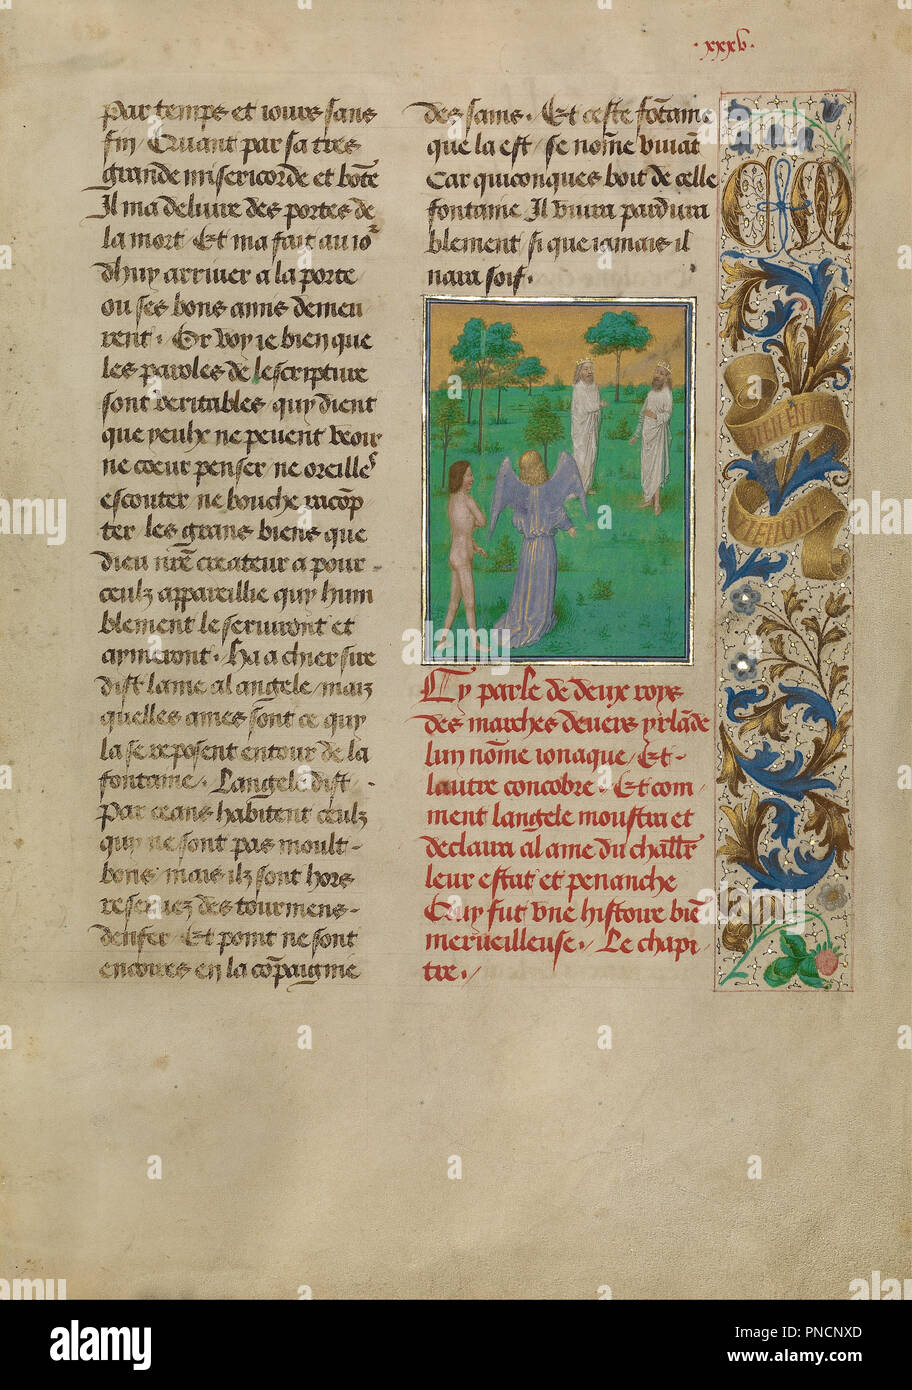 ·xxxv·
par temps et iours sans
fin / Criant par sa tres
grande misericorde et bōte
Il ma deliure des portes de
la mort / Et ma fait au io2
dhuy arriuer a la porte
ou ses bons amis demeu
rent. Or voy ie bien que
les paroles de lescripture
sont veritables quy dient
que yeulx ne peuent veoir
ne coeur penser ne oreilles
escouter ne bouche racōp
ter les grans biens que
dieu nr̄e createur a pour-
ceulz appareillie quy hum
blement le seruiront et
aymeront. Ha a chier sire
dist lame al angele / maiz
quelles ames sont ce quy
la se reposent entour de la
fontaine. Langele dist -
Par ceans habitent ceulz
quy ne sont pas moult -
bons / mais ilz sont hors
reseruez des tourmens -
denfer / Et point ne sont
encores en la cōpaignie
des sains. Et ceste fōtaine
que la est / se nōme viuāt
Car quiconques boit de celle
fontaine Il viura pardura
blement si que iamais il
naura soif.
Cy parle de deux roys
des marches deuers yrlāde
lun nōme ionaque / Et -
lautre concobre. Et com /
ment langele moustra et
declaira al ame du challr̄
leur estat et penanche
Quy fut vne histoire biē
merueilleuse. Le chapi-
tre. /
a alamy
Image ID: PNCNXD
www.alamy.com